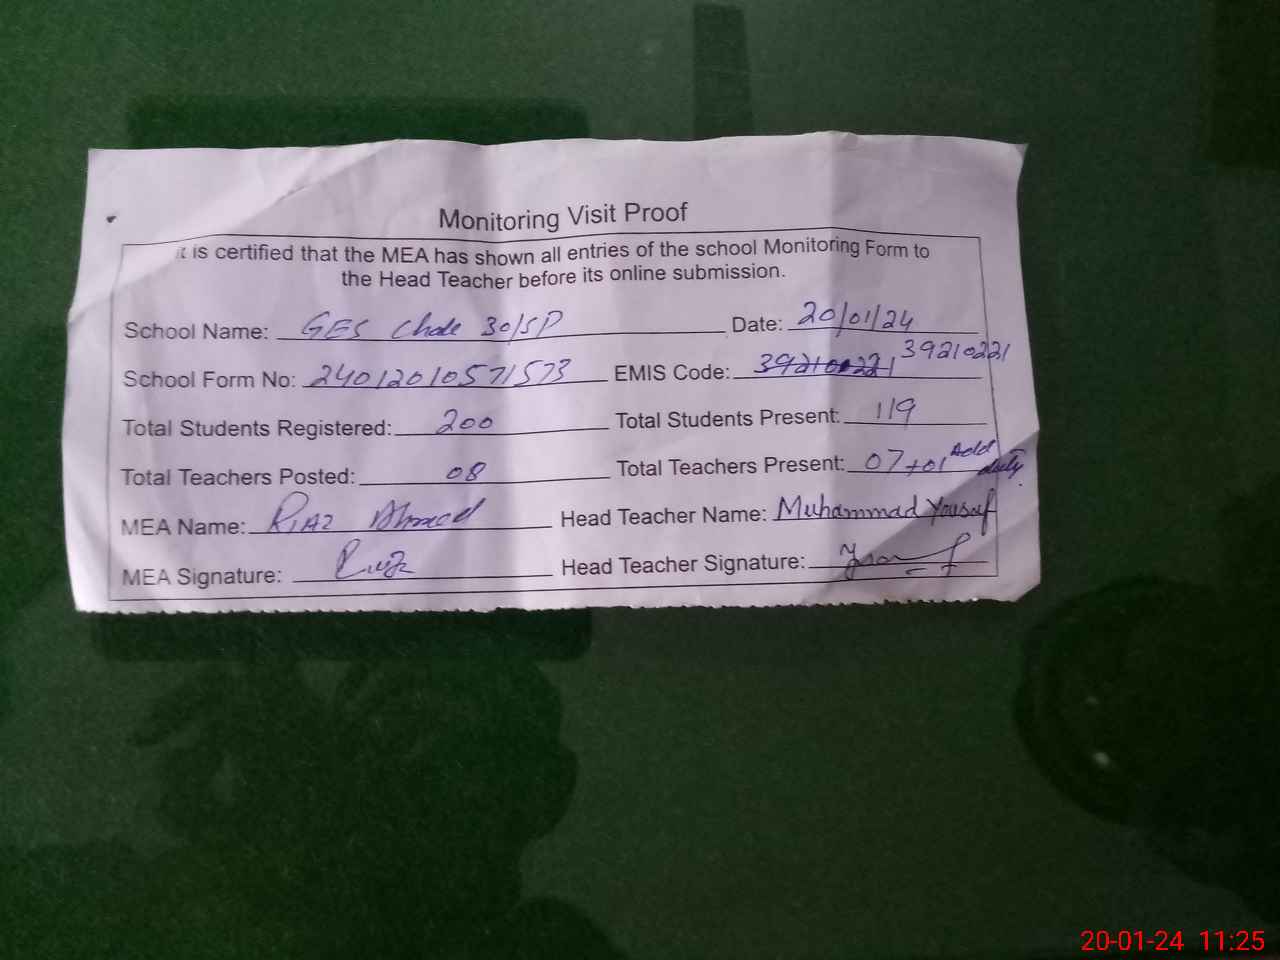 Monitoring Visit Proof
it is certified that the MEA has shown all entries of the school Monitoring Form to
the Head Teacher before its online submission.
School Name: GES Chak 30/SP Date: 20/01/24
School Form No: 24012010571573 EMIS Code: 39210221 39210221
Total Students Registered: 200 Total Students Present: 119
Total Teachers Posted: 08 Total Teachers Present: 07+01 Add duty.
MEA Name: Riaz Ahmed Head Teacher Name: Muhammad Yousuf
MEA Signature: Head Teacher Signature:
20-01-24 11:25